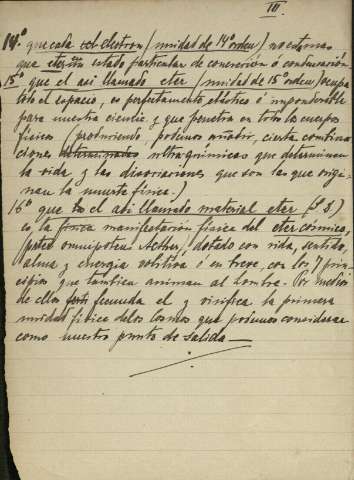 III.
14.º que cada electron (unidad de 14º orden) no es mas
que un estado particular de concrecion ó condensación
15º que el asi llamado eter (unidad de 15º orden) ocupa
todo el espacio, es perfectamente elástico é imponderable
para nuestra ciencia y que penetra en todos los cuerpos
físicos (produciendo, podemos añadir, cierta combina
ciones ultra químicas que determinan
la vida y las disociaciones que son las que origi-
nan la muerte física.)
16º que el asi llamado material eter
es la manifestación física del eter cósmico,
omnipotens Aether, dotado con vida, sentido,
alma y energia volitiva ó en breve, con los 7 prin-
cipios que tambien animan al hombre. Por medio
de ellos fecunda el y vivifica la primera
unidad física de los cosmos que podemos considerar
como nuestro punto de salida—